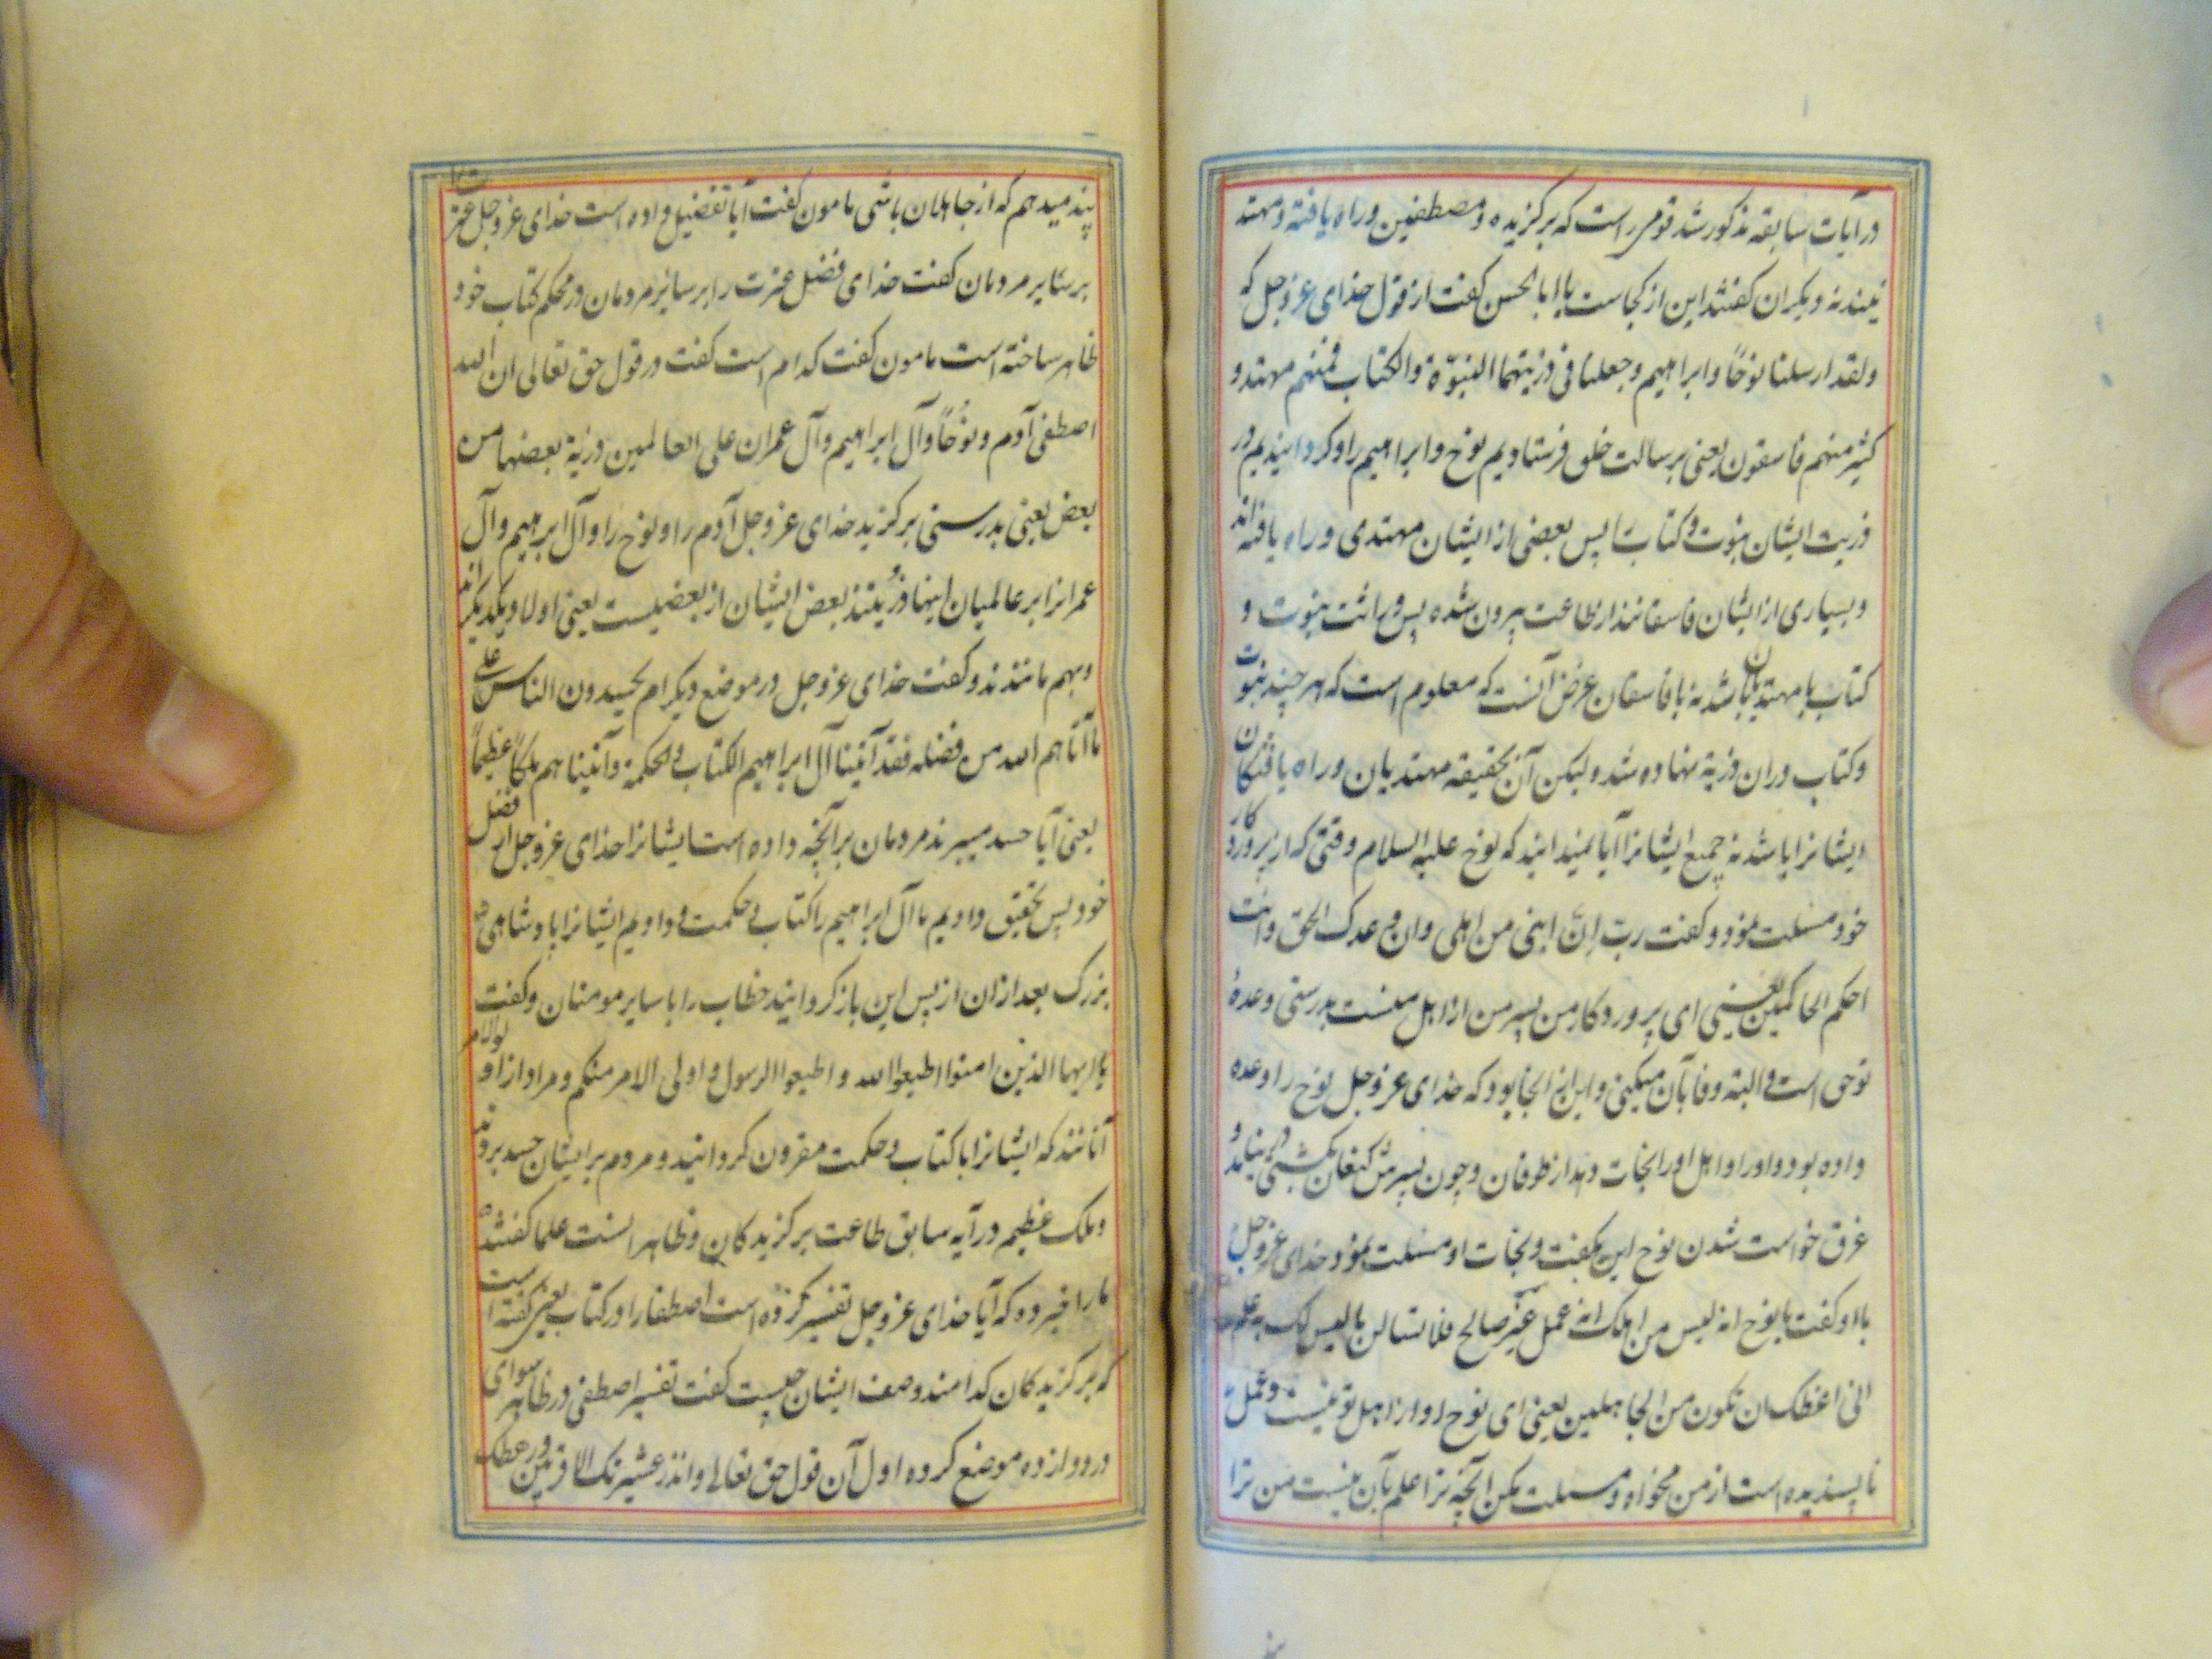 در آیات سابقه مذکور شد قومی راست که برکزیده و مصطفین و راه یافته و مهتد
نیند نه دیکران کفتند این از کجاست یا ابا الحسن کفت از قول خدای عز و جل که
ولقد ارسلنا نوحاً وابراهیم وجعلنا فی ذریتهما النبوّة والکتاب فمنهم مهتد و
کثیر منهم فاسقون یعنی برسالت خلق فرستادیم نوح و ابراهیم را و کردانیدیم در
ذریت ایشان نبوت و کتاب را پس بعضی از ایشان مهتدی و راه یافته اند
و بسیاری از ایشان فاسقانند از طاعت بیرون شده پس وراثت نبوت و
کتاب با مهتدیان باشد نه با فاسقان غرض آنست که معلوم است که هر چند نبوت
و کتاب در ان ذریة نهاده شد و لیکن آن بحقیقه مهتدیان و راه یافتکان
ایشانرا باشد نه جمیع ایشانرا آیا نمیدانید که نوح علیه السلام وقتی که از پروردکار
خود مسئلت نمود و کفت رب اِنَّ ابنی من اهلی وان وعدک الحق وانت
احکم الحاکمین یعنی ای پروردکار من پسر من از اهل منست بدرستی وعدهٔ
تو حق است و البته وفا بآن میکنی و این از انجا بود که خدای عز و جل نوح را وعده
داده بود و او را و اهل او را نجات دهد از طوفان و چون پسرش کنعان بکشتی در نیامد و
غرق خواست شدن نوح این بکفت و نجات او مسئلت نمود خدای عز و جل
با او کفت یا نوح انه لیس من اهلک انه عمل غیر صالح فلا تسالن ما لیس لک به علم
انی اعظک ان تکون من الجاهلین یعنی ای نوح او از اهل تو نیست و عمل
ناپسندیده است از من مخواه و مسئلت مکن آنچه ترا علم بآن نیست من ترا
پند میدهم که از جاهلان باشی مامون کفت آیا تفضیل داده است خدای عز و جل عترت را
بر سایر مردمان کفت خدای فضل عترت را بر سایر مردمان در محکم کتاب خود
ظاهر ساخته است مامون کفت کدام است کفت در قول حق تعالی ان الله
اصطفی آدم و نوُحاً وآل ابراهیم وآل عمران علی العالمین ذریة بعضها من
بعض یعنی بدرستی برکزید خدای عز و جل آدم را و نوح را و آل ابراهیم و آل
عمرانرا بر عالمیان اینها ذریتند بعض ایشان از بعضیست یعنی اولاد یکدیکراند
و بهم مانندند و کفت خدای عز و جل در موضع دیکر ام یحسدون الناس علی
ما آتاهم الله من فضله فقد آتینا آل ابراهیم الکتاب والحکمة وآتیناهم ملکاً عظیماً
یعنی آیا حسد میبرند مردمان بر آنچه داده است ایشانرا خدای عز و جل از فضل
خود پس بتحقیق دادیم ما آل ابراهیم را کتاب و حکمت و دادیم ایشانرا پادشاهی
بزرک بعد از ان از پس این باز کردانید خطاب را با سایر مومنان و کفت
یا ایها الذین امنوا اطیعوا الله و اطیعوا الرسول و اولی الامر منکم و مراد از اولوالامر
آنانند که ایشانرا با کتاب و حکمت مقرون کردانید و مردم بر ایشان حسد بردند
و ملک عظیم در آیه سابق طاعت برکزیدکان و ظاهر انست علما کفتند
مارا خبر ده که آیا خدای عز و جل تفسیر کرده است اصطفا را در کتاب یعنی کفته است
که برکزیدکان کدامند و صف ایشان چیست کفت تفسیر اصطفی در ظاهر سوای
در دوازده موضع کرده اول آن قول حق تعالی وانذر عشیرتک الاقربین ورهطک